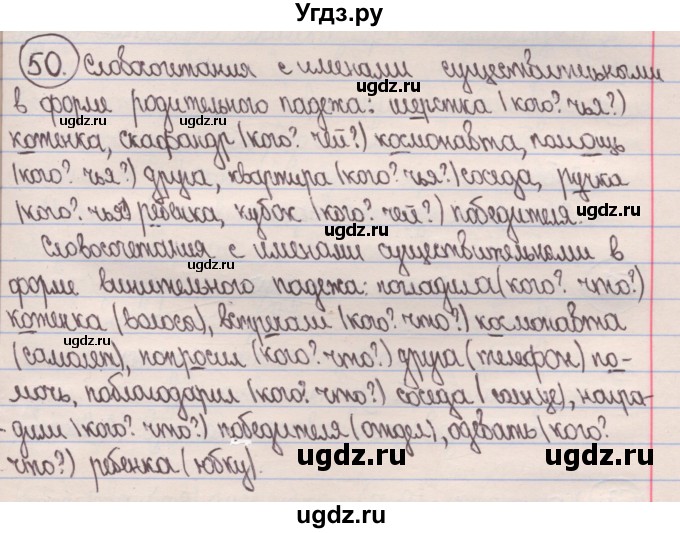 Угдз.ру
50. Словосочетания с именами существительными
в форме родительного падежа: шерстка (кого? чья?)
котенка, скафандр (кого? чей?) космонавта, помощь
(кого? чья?) друга, квартира (кого? чья?) соседа, ручка
(кого? чья?) ребенка, кубок (кого? чей?) победителя.
Словосочетания с именами существительными в
форме винительного падежа: погладила (кого? что?)
котенка (волосы), встречали (кого? что?) космонавта
(самолет), попросили (кого? что?) друга (телефон) по-
мочь, поблагодарил (кого? что?) соседа (солнце), награ-
дили (кого? что?) победителя (отдел), одевать (кого?
что?) ребенка (юбку).
ugdz.ru
ugdz.ru
ugdz.ru
ugdz.ru
ugdz.ru
ugdz.ru
ugdz.ru
ugdz.ru
ugdz.ru
ugdz.ru
ugdz.ru